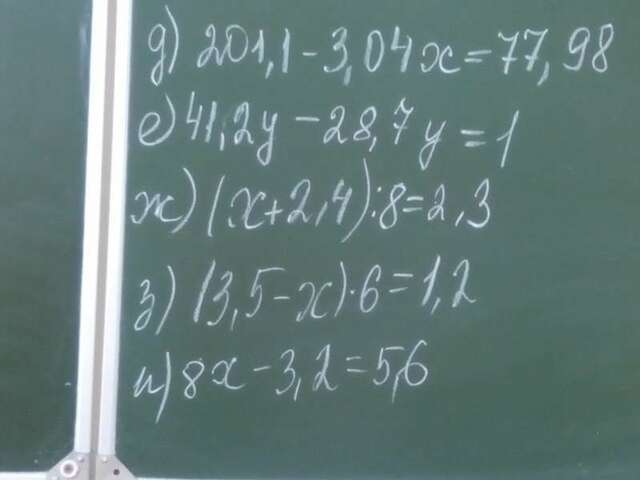 д) 201,1 - 3,04x = 77,98
е) 41,2y - 28,7y = 1
ж) (x + 2,4) : 8 = 2,3
з) (3,5 - x) · 6 = 1,2
и) 8x - 3,2 = 5,6